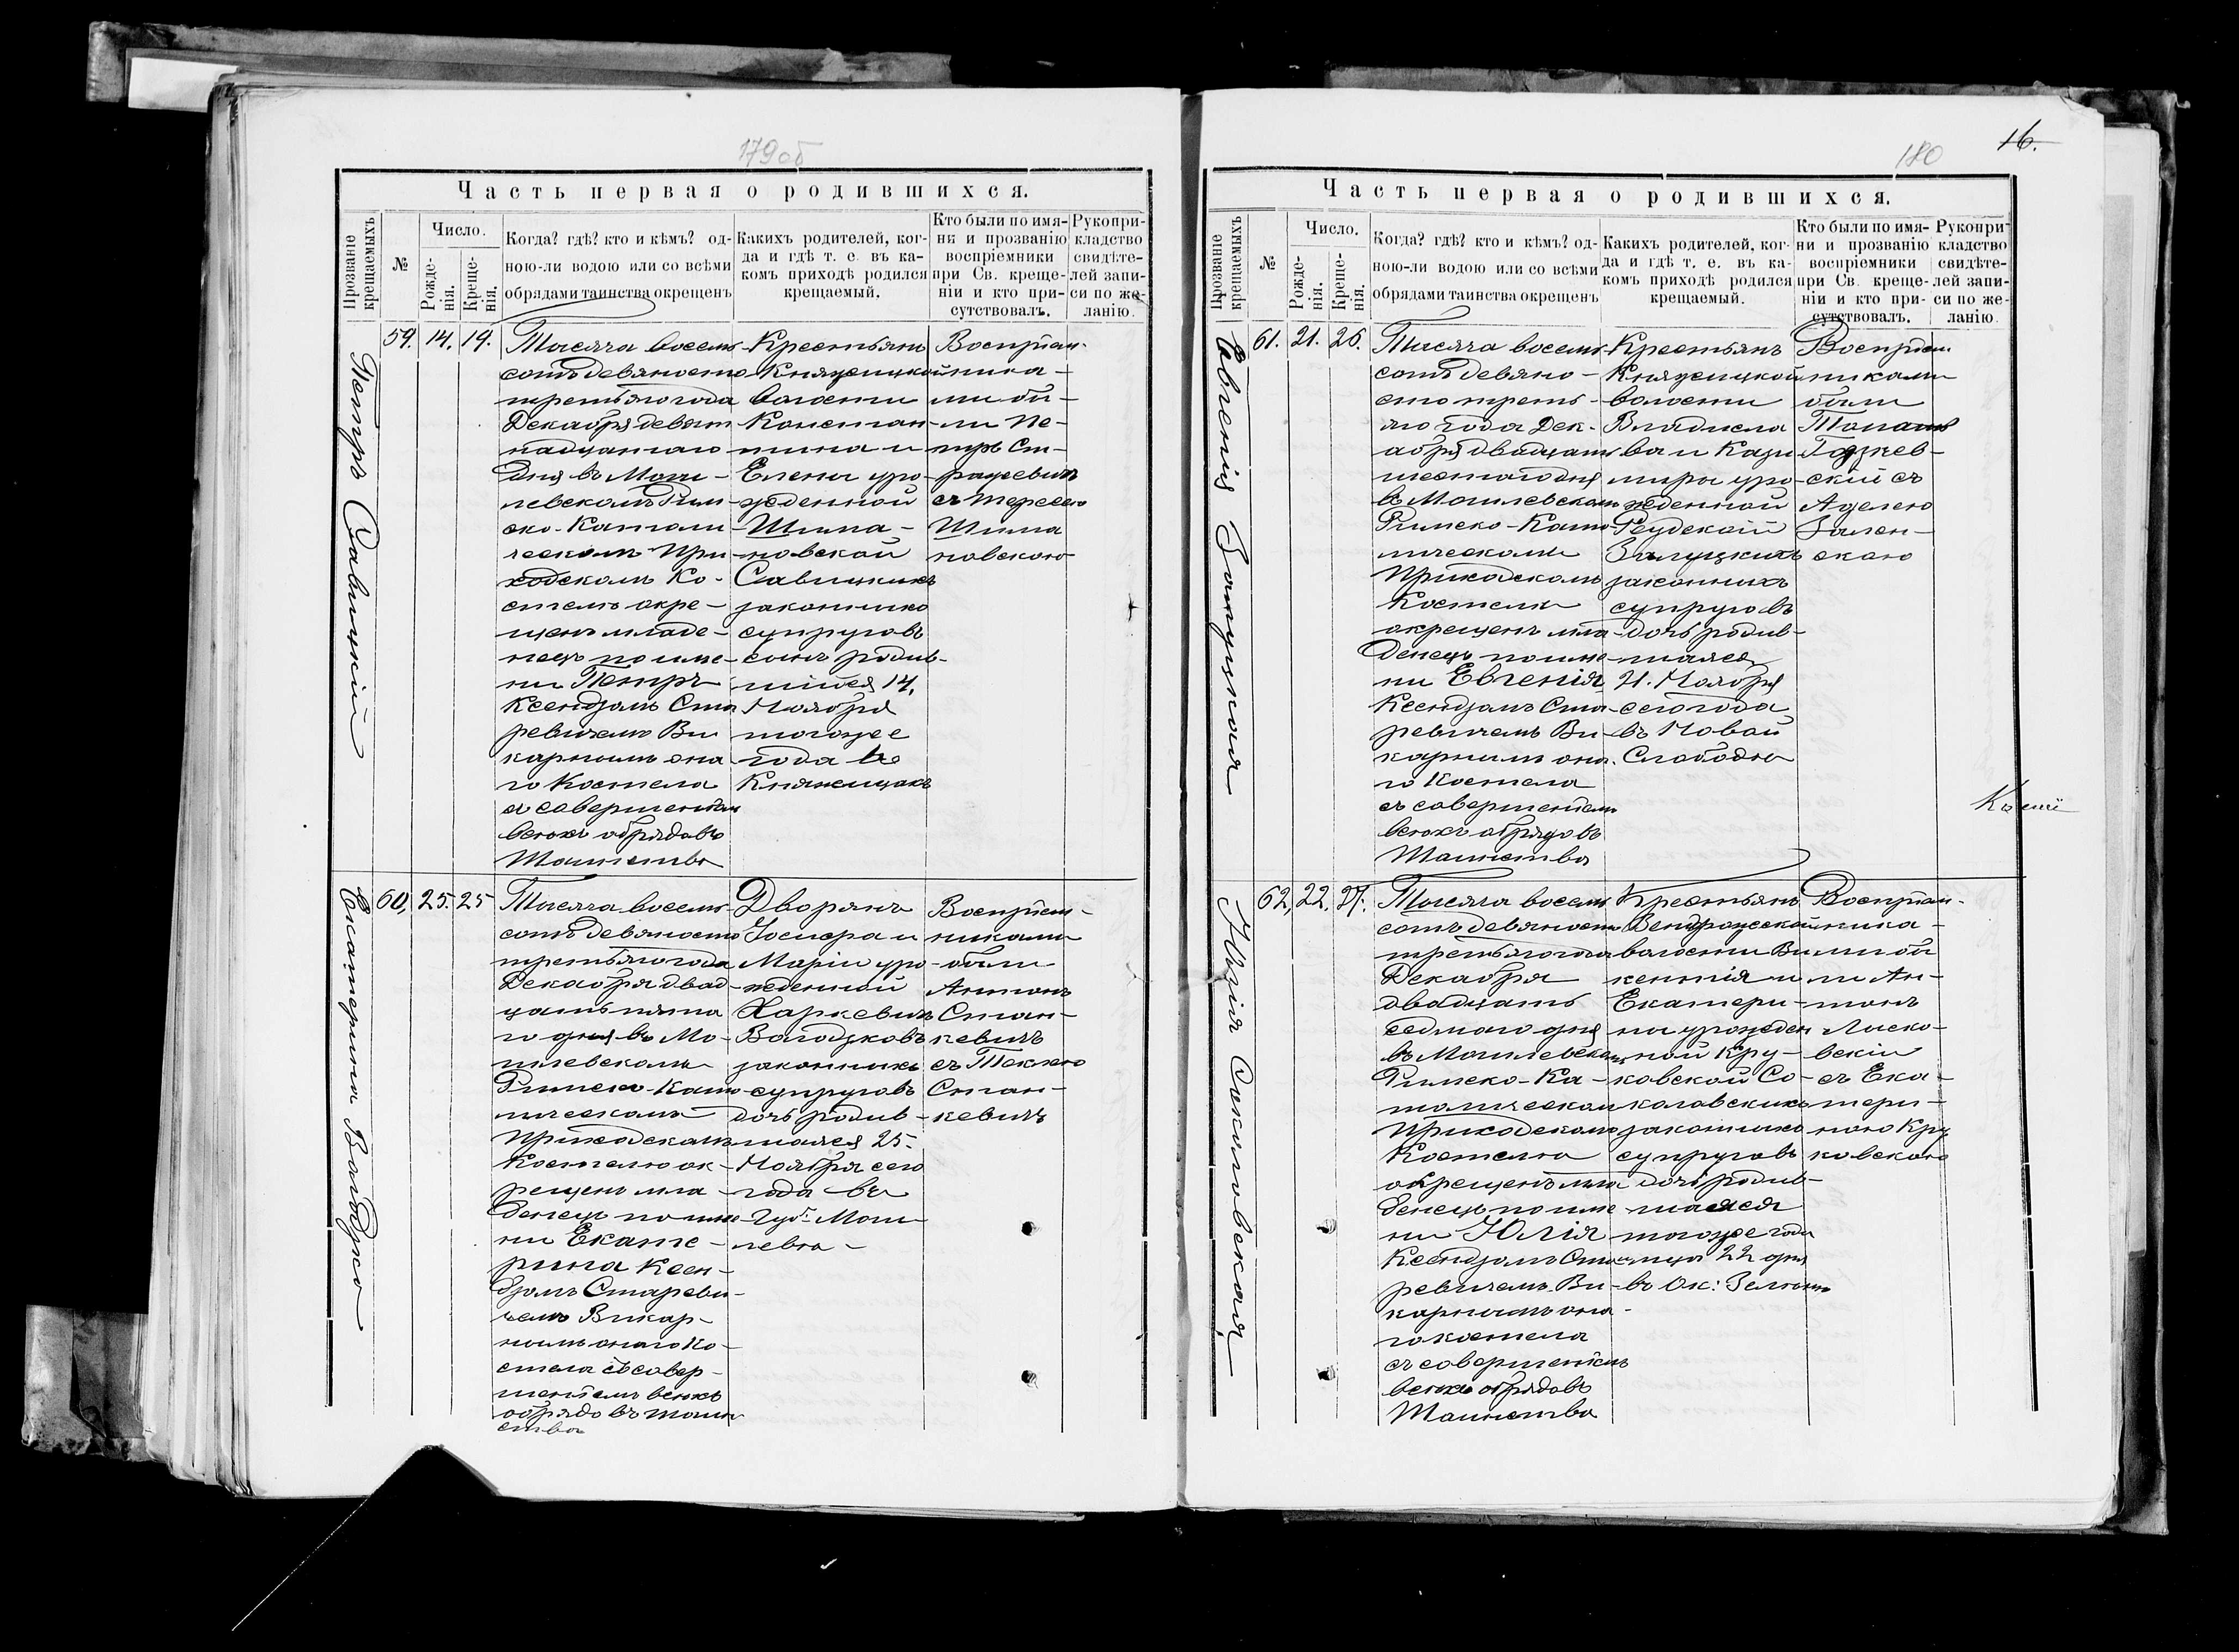 179об
Часть первая о родившихся.
Прозваніе крещаемыхъ
№
Число.
Рожде-
нія.
Креще-
нія.
Когда? гдѣ? кто и кѣмъ? од-
ною-ли водою или со всѣми
обрядами таинства окрещенъ
Какихъ родителей, ког-
да и гдѣ т. е. въ ка-
комъ приходѣ родился
крещаемый.
Кто были по имя-
ни и прозванію
воспріемники
при Св. креще-
ніи и кто при-
сутствовалъ.
Рукопри-
кладство
свидѣте-
лей запи-
си по же-
ланію.
Петръ Савицкій
59. 14. 19.
Тысяча восемь-
сотъ девяносто
третьяго года
Декабря девят
надцатаго
дня въ Моги-
левскомъ Рим-
ско-Католи-
ческомъ При-
ходскомъ Ко-
стелѣ окре-
щенъ младе-
нецъ по име-
ни Петръ
Ксендзомъ Ста
ревичемъ Ви
карнымъ она
го Костела
съ совершеніем
всѣхъ обрядовъ
Таинства
Крестьянъ
Княжицкой
волости
Констан-
тина и
Елены уро-
жденной
Шима-
новской
Савицкихъ
законныхъ
супруговъ
сынъ родив-
шійся 14.
Ноября
того же
года въ
Княжицахъ
Воспріем-
ника-
ми бы-
ли Пе-
тръ Ст-
рацевичъ
съ Тересею
Шима
новскою
Екатерина Володзко
60, 25. 25
Тысяча восемь-
сотъ девяносто
третьяго года
Декабря двад-
цать пята
го дня въ Мо-
гилевскомъ
Римско-Като-
лическомъ
Приходскомъ
Костелѣ ок-
рещенъ мла-
денецъ по име-
ни Екате-
рина Ксен-
дзомъ Стареви-
чемъ Викар-
нымъ онаго Ко-
стела съ совер-
шеніемъ всѣхъ
обрядовъ таин
ства
Дворянъ
Іосифа и
Маріи уро-
жденной
Харкевичъ
Володзковъ
законныхъ
супруговъ
дочь родив-
шаяся 25.
Ноября сего
года въ
Губ. Моги
левѣ-
Воспріем-
никами
были
Антонъ
Стан-
кевичъ
съ Теклею
Стан-
кевичъ
180
16.
Часть первая о родившихся.
Прозваніе крещаемыхъ
№
Число.
Рожде-
нія.
Креще-
нія.
Когда? гдѣ? кто и кѣмъ? од-
ною-ли водою или со всѣми
обрядами таинства окрещенъ
Какихъ родителей, ког-
да и гдѣ т. е. въ ка-
комъ приходѣ родился
крещаемый.
Кто были по имя-
ни и прозванію
воспріемники
при Св. креще-
ніи и кто при-
сутствовалъ.
Рукопри-
кладство
свидѣте-
лей запи-
си по же-
ланію.
Евгенія Залуцкая
61. 21. 26.
Тысяча восемь-
сотъ девяно-
сто треть-
яго года Дек-
абря двадцать
шестого дня
въ Могилевскомъ
Римско-Като-
лическомъ
Приходскомъ
Костелѣ
окрещенъ мла-
денецъ по име
ни Евгенія
Ксендзомъ Ста-
ревичемъ Ви-
карнымъ она-
го Костела
съ совершеніемъ
всѣхъ обрядовъ
Таинства
Крестьянъ
Княжицкой
волости
Владисла
ва и Кази
миры уро-
жденной
Рудской
Залуцкихъ
законныхъ
супруговъ
дочь родив-
шаяся
21. Ноября
сего года
въ Новой
Слободѣ
Воспріем
никами
были
Томашъ
-
скій съ
Аделею
Зален-
скою
Юлія Соколовская
62, 22. 27.
Тысяча восемь
сотъ девяносто
третьяго года
Декабря
двадцать
седмаго дня
въ Могилевском
Римско-Ка-
толическом
Приходскомъ
Костелѣ
окрещенъ мла
денецъ по име
ни Юлія
Ксендзомъ Ста-
ревичемъ Ви-
карнымъ она-
го костела
съ совершеніемъ
всѣхъ обрядовъ
Таинства
Крестьянъ
Вендрожской
волости Ви
кентія и
Екатери-
ны урожден
ной Кру-
ковской Со-
коловскихъ
законныхъ
супруговъ
дочь родив-
шаяся
того же года
мца 22 дня
въ Ок:
Воспріем-
ника-
ми бы
ли Ан-
тонъ
Лиско-
вскій
съ Ека-
тери-
ною Кру
ковскою